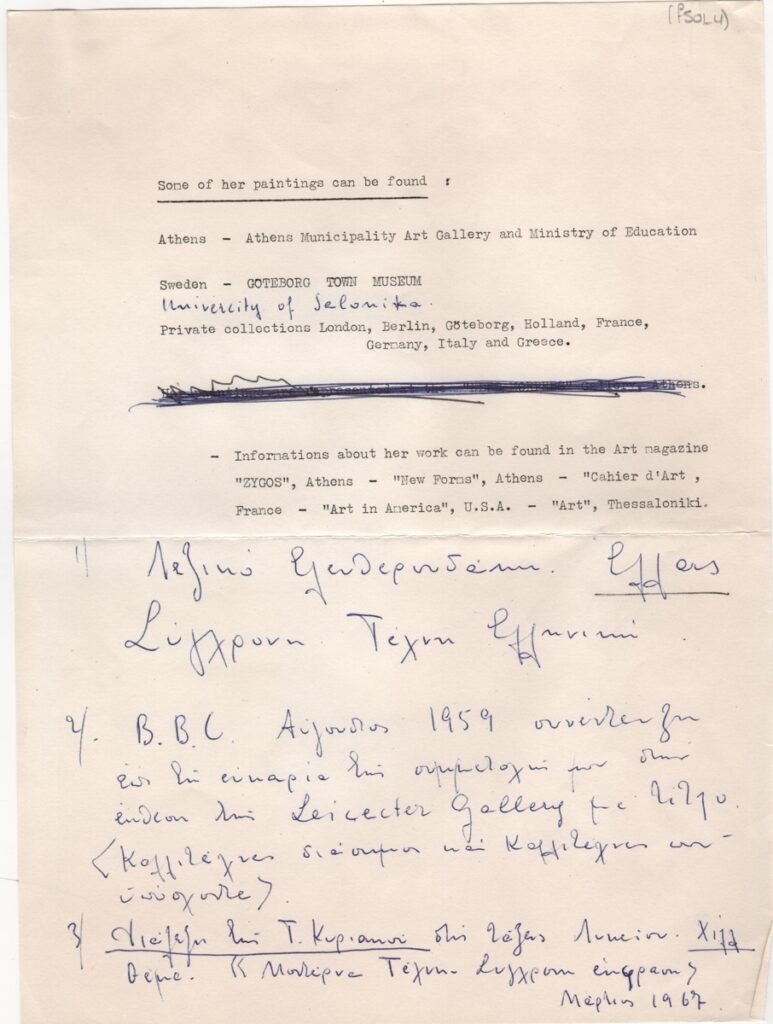 (PSOL4)
Some of her paintings can be found :
Athens - Athens Municipality Art Gallery and Ministry of Education
Sweden - GOTEBORG TOWN MUSEUM
Univercity of Salonika.
Private collections London, Berlin, Göteborg, Holland, France,
Germany, Italy and Greece.
Athens.
- Informations about her work can be found in the Art magazine
"ZYGOS", Athens - "New Forms", Athens - "Cahier d'Art ,
France - "Art in America", U.S.A. - "Art", Thessaloniki.
1) Λεξικό Ελευθερουδάκη. Ελλάς
Σύγχρονη Τέχνη Ελληνική.
2). B.B.C. Αύγουστος 1959 συνέντευξη
επί τη ευκαιρία της συμμετοχή μου στην
έκθεση της Leicecter Gallery με τίτλο.
<Καλλιτέχνες διάσημοι και Καλλιτέχνες
3) Διάλεξη της Τ. Κυριακού στις τάξεις Λυκείου. Χιλλ
Θέμα. <Μοντέρνα Τέχνη. Σύγχρονη έκφραση>
Μάρτιος 1967